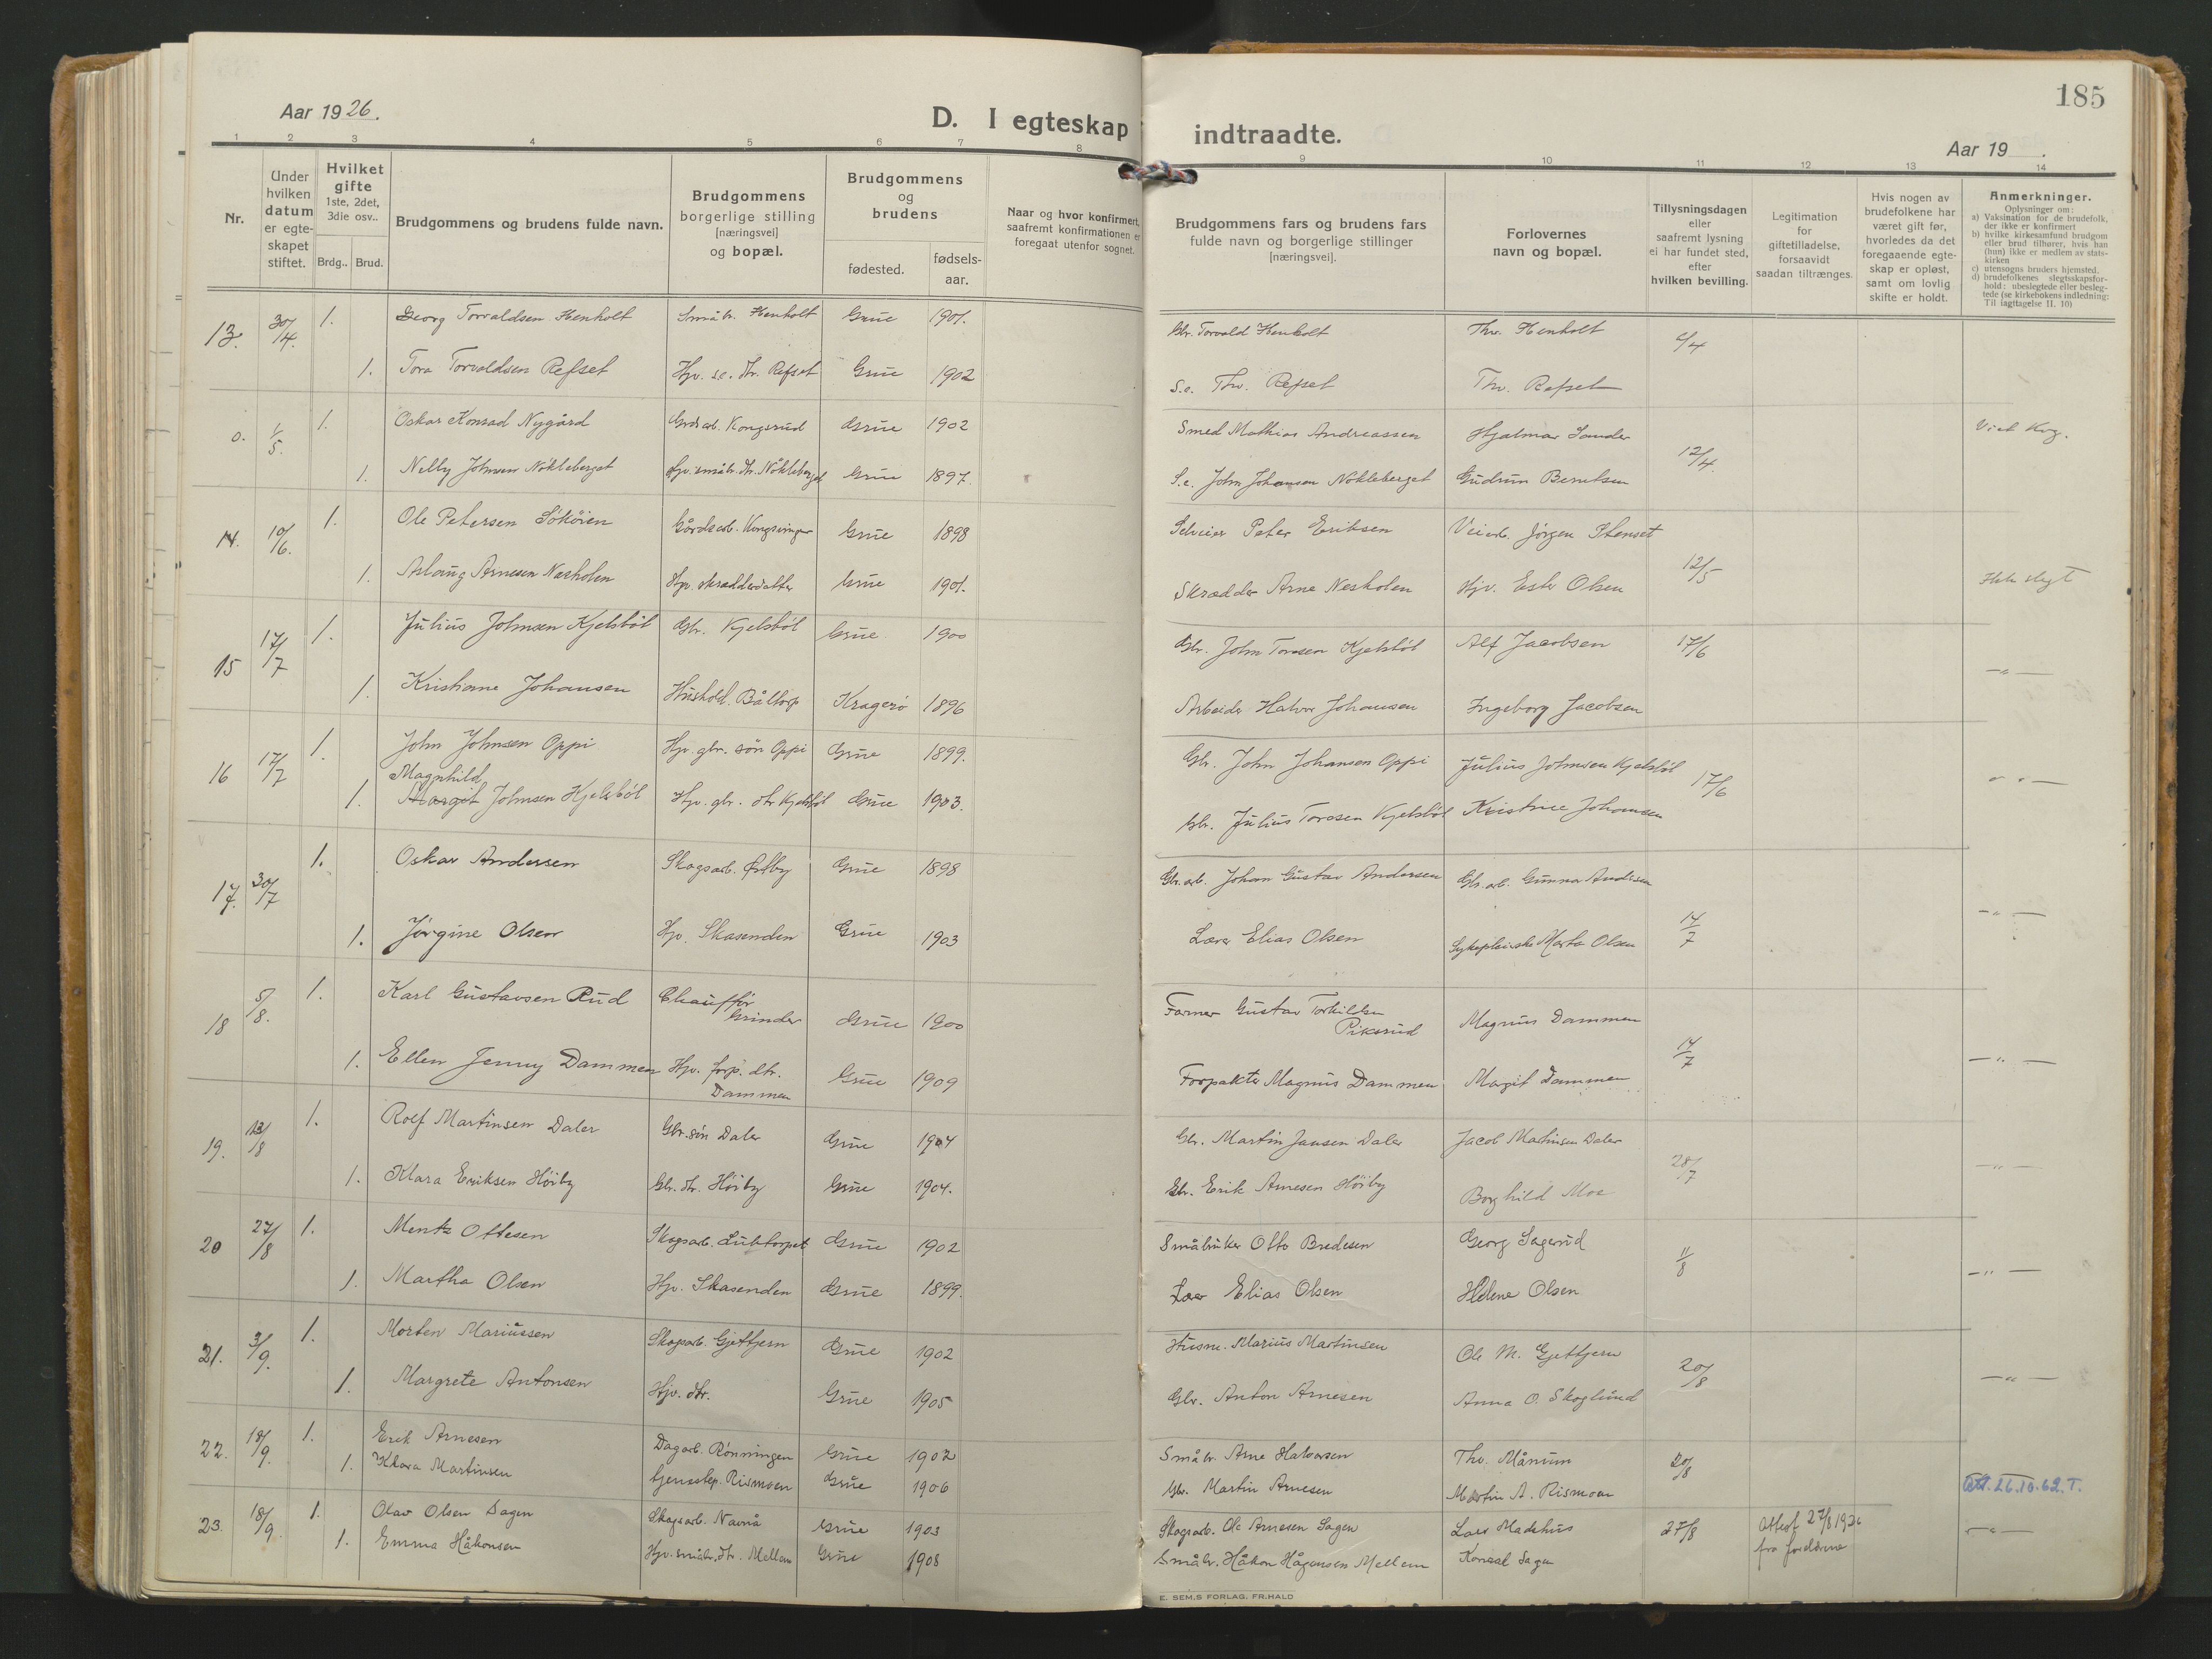 185
Aar 1926.
D. I egteskap indtraadte.
Aar 19 .
1 2 3 4 5 6 7 8 9 10 11 12 13 14
Nr.
Under hvilken datum er egteskapet stiftet.
Hvilket gifte 1ste, 2det, 3die osv..
Brdg.. Brud.
Brudgommens og brudens fulde navn.
Brudgommens borgerlige stilling [næringsvei] og bopæl.
Brudgommens og brudens
fødested.
fødsels-aar.
Naar og hvor konfirmert, saafremt konfirmationen er foregaat utenfor sognet.
Brudgommens fars og brudens fars fulde navn og borgerlige stillinger [næringsvei].
Forlovernes navn og bopæl.
Tillysningsdagen eller saafremt lysning ei har fundet sted, efter hvilken bevilling.
Legitimation for giftetilladelse, forsaavidt saadan tiltrænges.
Hvis nogen av brudefolkene har været gift før, hvorledes da det foregaaende egteskap er opløst, samt om lovlig skifte er holdt.
Anmerkninger.
Oplysninger om:
a) Vaksination for de brudefolk, der ikke er konfirmert
b) hvilke kirkesamfund brudgom eller brud tilhører, hvis han (hun) ikke er medlem av statskirken
c) utensogns bruders hjemsted.
d) brudefolkenes slegtsskapsforhold: ubeslegtede eller beslegtede (se kirkebokens indledning: Til iagttagelse II. 10)
13. 30/4. 1. Georg Torvaldsen Henholt Småbr. Henholt Grue 1901. Gbr. Torvald Henholt Thv. Henholt 6/4
1. Tora Torvaldsen Refset Hjv. s.e. dtr. Refset Grue 1902 S.e. Thv. Refset Thv. Refset
0. 1/5. 1. Oskar Konrad Nygård Grdsarb. Kongsrud Grue 1902 Smed Mathias Andreassen Hjalmar Sander 12/4. Viet Kvg.
1. Nelly Johnsen Nökleberget Hjv. småbr. dtr. Nökleberget Grue 1897. S.e. John Johansen Nökleberget Gudrun Berntsen
14. 10/6. 1. Ole Petersen Sököien Gårdsarb. Kongsvinger Grue 1898 Selveier Peter Eriksen Veiarb. Jörgen Stenset 12/5 Ikke slegt
1. Aslaug Arnesen Nesholen Hjv. skrædderdatter Grue 1901. Skrædder Arne Nesholen Hjv. Ester Olsen
15 17/7 1. Julius Johnsen Kjelsböl Gbr. Kjelsböl Grue 1900 Gbr. John Torasen Kjelsböl Alf Jacobsen 17/6 — " —
1. Kristiane Johansen Hushold. Båltorp Kragerö 1896 Arbeider Halvor Johansen Ingeborg Jacobsen
16 17/7 1. John Johnsen Oppi Hjv. gbr. sön Oppi Grue 1899. Gbr. John Johansen Oppi Julius Johnsen Kjelsböl 17/6 " " —
Magnhild
1. Margit Johnsen Kjelsböl Hjv. gbr. dtr Kjelsböl Grue 1903. Gbr. Julius Torasen Kjelsböl Kristine Johansen
17. 30/7 1. Oskar Andersen Skogsarb. Østby Grue 1898 Gbr. arb. Johan Gustav Andersen Gbr. arb. Gunnar Andersen 14/7 — " —
1. Jörgine Olsen Hjv. Skasenden Grue 1903 Lærer Elias Olsen Sykepleierske Marta Olsen
18 5/8. 1. Karl Gustavsen Rud Chaufför Grinder Grue 1900 Farmer Gustav Torkildsen Piksrud Magnus Dammen 14/7 — " —
1. Ellen Jenny Dammen Hjv. forp. dtr. Dammen Grue 1909 Forpakter Magnus Dammen Margit Dammen
19. 13/8 1. Rolf Martinsen Daler Gbr. sön Daler Grue 1904 Gbr. Martin Jansen Daler Jacob Martinsen Daler 28/7 — " —
1. Klara Eriksen Höiby Gbr. dtr. Höiby Grue 1904. Gbr. Erik Arnesen Höiby Borghild Moe
20 27/8 1. Mentz Ottesen Skogsarb. Lubtorpet Grue 1902 Småbruker Otto Bredesen Georg Sagerud 11/8 — " —
1. Martha Olsen Hjv. Skasenden Grue 1899. Lærer Elias Olsen Helene Olsen
21. 3/9. 1. Morten Mariussen Skogsarb. Gjetjern Grue 1902 Husm. Marius Martinsen Ole M. Gjetjern 20/8 — " —
1. Margrete Antonsen Hjv. dtr. Grue 1905 Gbr. Anton Arnesen Anna O. Skoglund
22. 18/9. 1. Erik Arnesen Dagarb. Rönningen Grue 1902 Småbr. Arne Halvorsen Thv. Månum 20/8
1. Klara Martinsen tjenestep. Rismoen Grue 1906 Gbr. Martin Arnesen Martin A. Rismoen Att. 26.10.62. T.
23. 18/9. 1. Olav Olsen Sagen Skogsarb. Navnå Grue 1903 Skogsarb. Ole Arnesen Sagen Lars Madshus 27/8 Attest 27/8 1926 fra foreldrene — " —
1. Emma Håkonsen Hjv. småbr. dtr. Mellem Grue 1908 Småbr. Håkon Hågensen Mellem Konrad Sagen
E. SEM.S FORLAG, FR.HALD